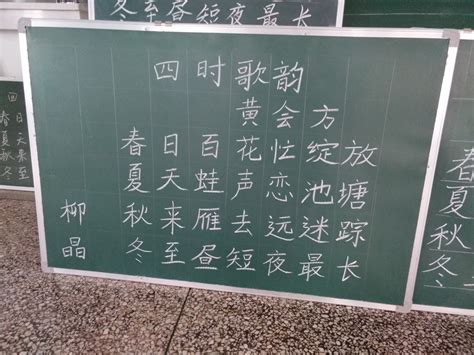 冬至昼短夜最长
四时歌韵
黄会方
春日百花忙绽放
夏天蛙声恋池塘
秋来雁去远迷踪
冬至昼短夜最长
柳晶
四
春日
夏天
秋来
冬至
春
夏
秋
冬